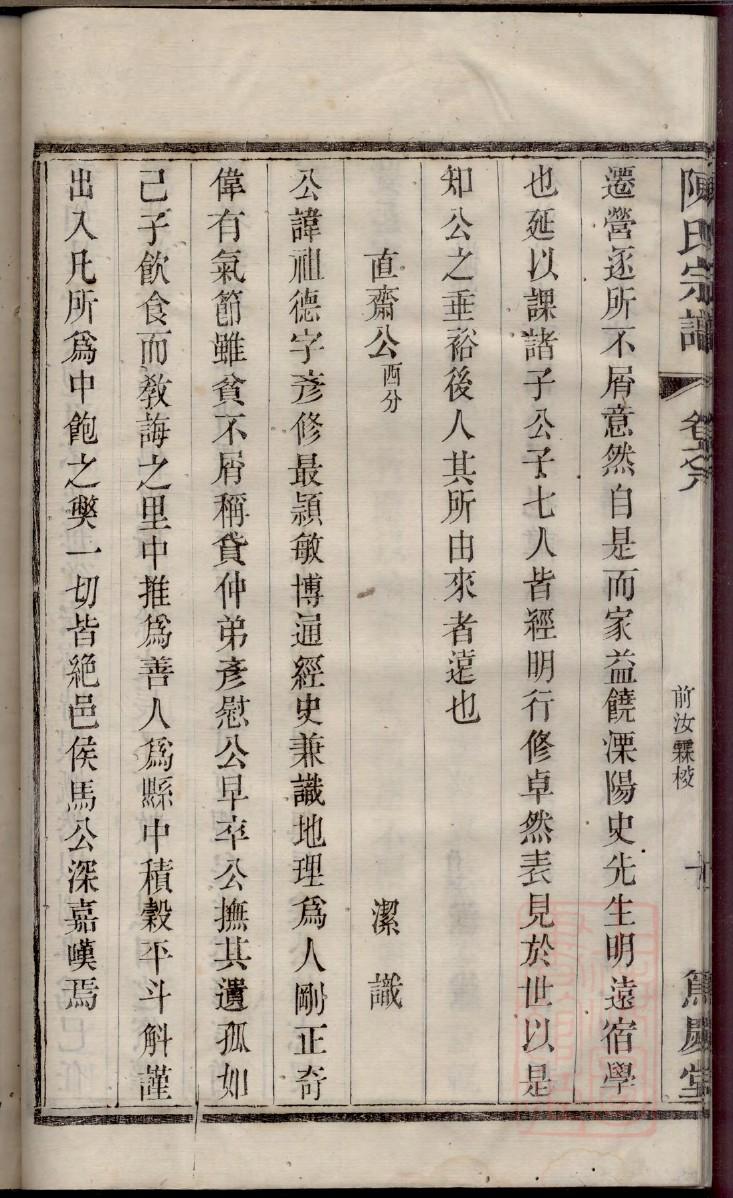 陳氏宗譜 卷六 前汝霖校 十 篤慶堂
遷營逐所不屑意然自是而家益饒溧陽史先生明遠宿學
也延以課諸子公子七人皆經明行修卓然表見於世以是
知公之垂裕後人其所由來者遠也
直齋公酉分 潔識
公諱祖德字彥修最頴敏博通經史兼識地理爲人剛正奇
偉有氣節雖貧不屑稱貸仲弟彥慰公早卒公撫其遺孤如
己子飲食而教誨之里中推爲善人爲縣中積穀平斗斛謹
出入凡所爲中飽之獘一切皆絶邑侯馬公深嘉嘆焉